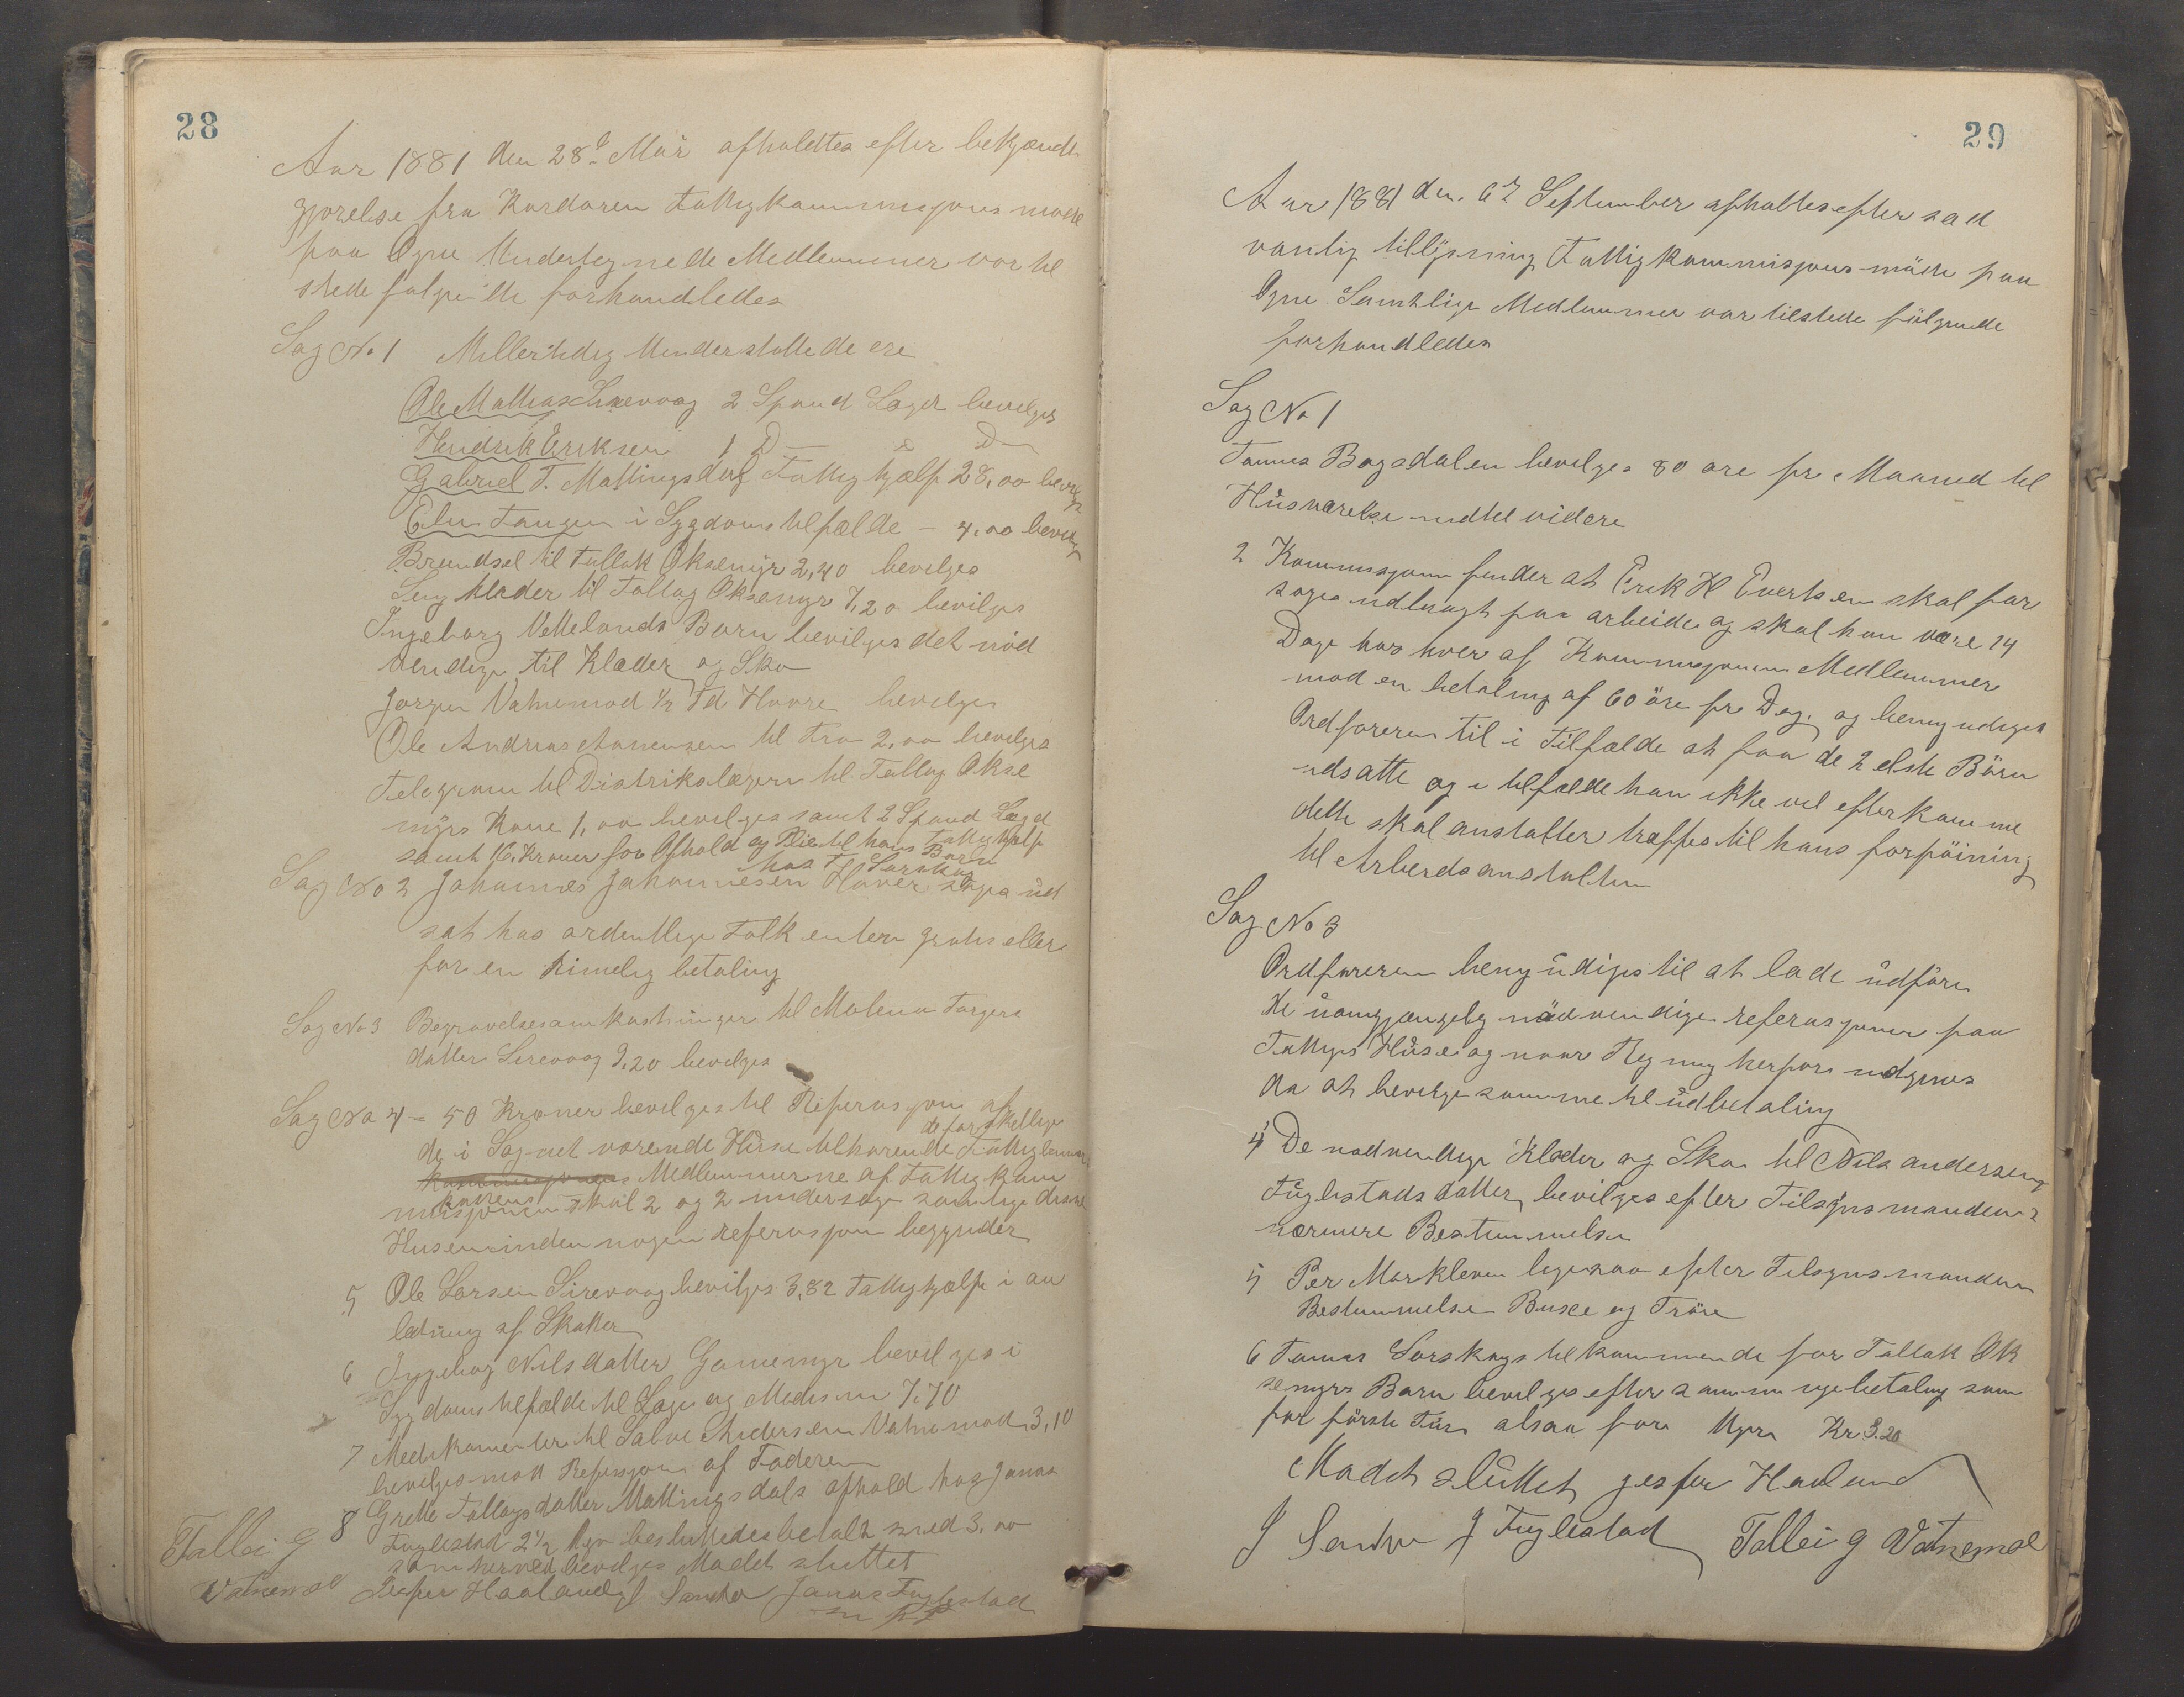 28
Aar 1881 den 28d Mai afholdtes efter bekjendt
gjørelse fra Kordoren Fattigkommisjons møde
paa Ogne Undertegnede Medlemmer var til
stede følgende forhandledes
Sag No 1 Midlertidig Understøttede ere
Ole Mathias Sirevaag 2 Spand bevilges
Hendrik Eriksen 1 D — D —
Gabriel T. Mattingsdal Fattighjælp 28,00 bevilges
Elen Tangen i Sygdomstilfælde — 4,00 bevilges
Brændsel til Tallak Oksemyr 2,40 bevilges
Seng klæder til Tallag Oksemyr 7,20 bevilges
Ingeborg Vettelands Barn bevilges det nød
vendige til Klæder og Sko
Jørgen Vatnemod 1/2 Td Havre bevilges
Ole Andreas Anensen til Frø 2,00 bevilges
Telegram til Distrikslægen til Tallag Okse
myrs Kone 1,00 bevilges samt 2 Spand
samt 16. Kroner for Ophold og Pleie til hans Fattighjælp
hos T. Sørskog Barn
Sag No 2 Johannes Johannesen Haver søges ud
sat hos ordentlige Folk enten gratis eller
for en Rimelig betaling
Sag No 3 Begravelsesomkostninger til Malena Torgers
datter Sirevaag 9,20 bevilges
Sag No 4 = 50 Kroner bevilges til Reperasjon af
de forskellige
de i Sognet værende Huse tilhørende Fattiglemmer
Medlemmerne af Fattigkom
misjonen skal 2 og 2 undersøge samtlige disse
Huse inden nogen referasjon begynder
5 Ole Larsen Sirevaag bevilges 3,82 Fattighjælp i an
ledning af Skatter
6 Ingebor Nilsdatter Gamemyr bevilges i
Sygdoms tilfælde til Læge og Medisin 7,70
7 Medikamenter til Salve Andersen Vatnemod 3,10
bevilges mod Refusjon af Faderen
8 Grethe Tallagsdatter Mattingsdals ophold hos Jonas
Fuglestad 2 1/2 Uge besluttedes betalt med 3,00
som herved bevilges Mødet sluttet
Tallei G
Vatnemoe Jesper Haaland J Sandve Jonas Fuglestad
29
Aar 1881 den 6te September afholtes efter sæd
vanlig tillysning Fattigkommisjons möde paa
Ogne Samtlige Medlemmer var tilstede fölgende
forhandledes
Sag No 1
Tomas Bogsdalen bevilges 80 øre pr Maaned til
Husværelse indtil videre
2 Kommisjonen finder at Erik H Evertsen skal for
søges udbragt paa arbeide og skal han være 14
Dage hos hver af Kommisjonens Medlemmer
mod en betaling af 60 öre pr Dag. og bemyndiges
Ordføreren til i Tilfælde at faa de 2 elste Börn
udsatte og i tilfælde han ikke vil efterkomme
dette skal anstalter træffes til hans forpöining
til Arbeidsanstalten
Sag No 3
Ordføreren bemyndiges til at lade udföre
de uomgjængelig nødvendige referasjoner paa
Fattiges Huse og naar Regning herfor indgives
da at bevilge samme til udbetaling
4 De nødvendige Klæder og Sko til Nils andersens
Fuglestads datter bevilges efter Tilsynsmandens
nærmere Bestemmelse
5 Per Markleven ligesaa efter Tilsynsmanden
Bestemmelse Buxe og Tröie
6 Tomas Sørskogs tilkommende for Tallak Ok
semyrs Barn bevilges efter samme ugebetaling som
for förste Tur alsaa for Uger Kr 3.20
Mødet sluttet Jesper Haaland
J Sandve J Fuglestad Tallei G Vatnemoe